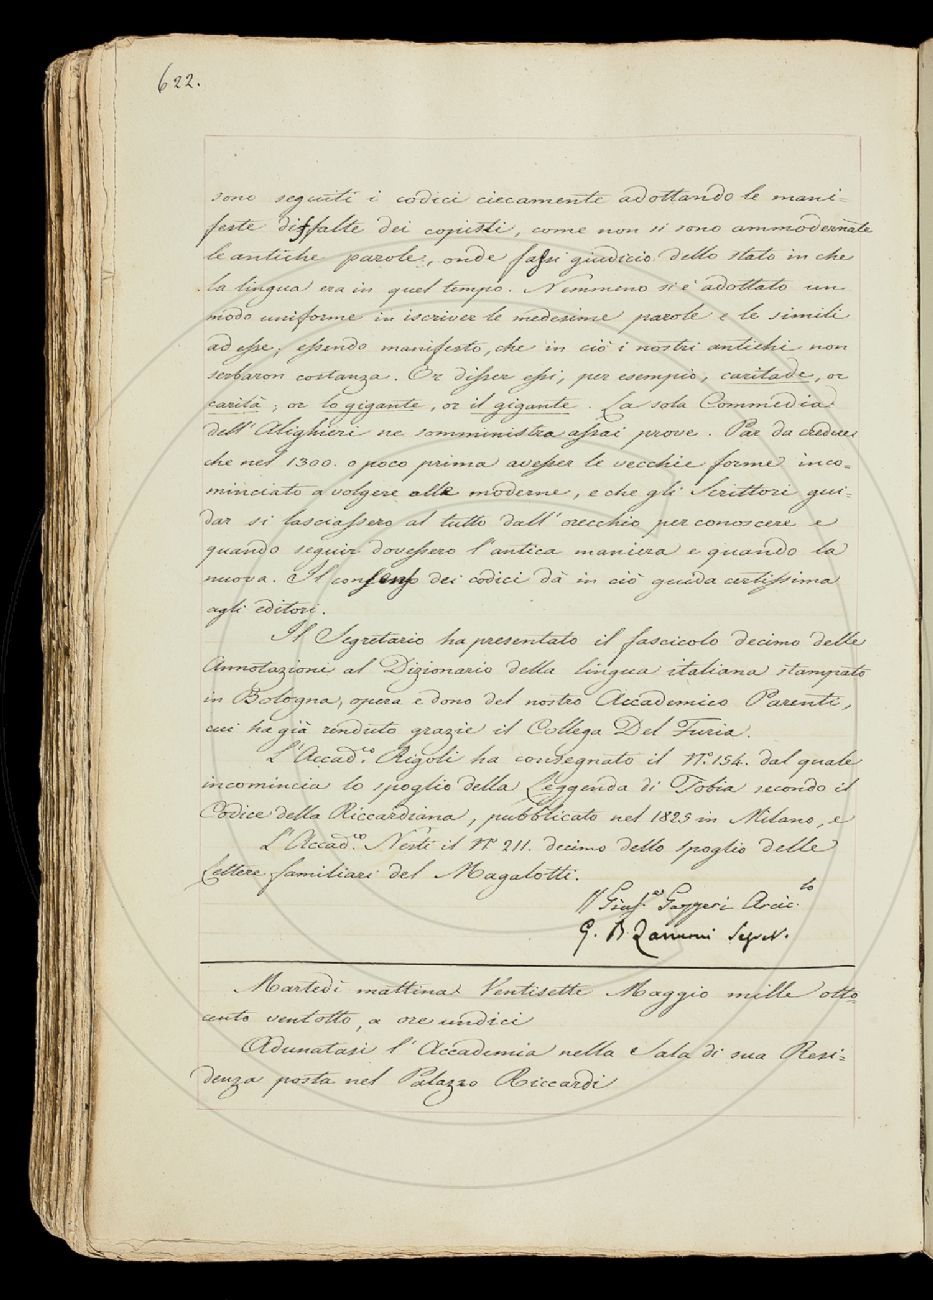 622.
sono seguiti i codici ciecamente adottando le mani-
feste diffalte dei copisti, come non si sono ammodernate
le antiche parole, onde fassi giudicio dello stato in che
la lingua era in quel tempo. Nemmeno si è adottato un
modo uniforme in iscriver le medesime parole e le simili
ad esse; essendo manifesto, che in ciò i nostri antichi non
serbaron costanza. Or disser essi, per esempio, caritade, or
carità; or lo gigante, or il gigante. La sola Commedia
dell'Alighieri ne somministra assai prove. Par da credere
che nel 1300. o poco prima avesser le vecchie forme inco-
minciato a volgere alle moderne, e che gli Scrittori gui-
dar si lasciassero al tutto dall'orecchio per conoscere e
quando seguir dovessero l'antica maniera e quando la
nuova. Il consenso dei codici dà in ciò guida certissima
agli editori.
Il Segretario ha presentato il fascicolo decimo delle
Annotazioni al Dizionario della lingua italiana stampato
in Bologna, opera e dono del nostro Accademico Parenti,
cui ha già renduto grazie il Collega Del Furia.
L'Accad.co Rigoli ha consegnato il N.o 154. dal quale
incomincia lo spoglio della Leggenda di Tobia secondo il
Codice della Riccardiana, pubblicato nel 1825 in Milano, e
L'Accad.co Nesti il N.o 211. decimo dello Spoglio delle
Lettere familiari del Magalotti.
Gius.e Gazzeri Arcic.lo
G. B. Zannoni Segret.
Martedì mattina Ventisette Maggio mille otto-
cento ventotto, a ore undici
Adunatasi l'Accademia nella Sala di sua Resi-
denza posta nel Palazzo Riccardi